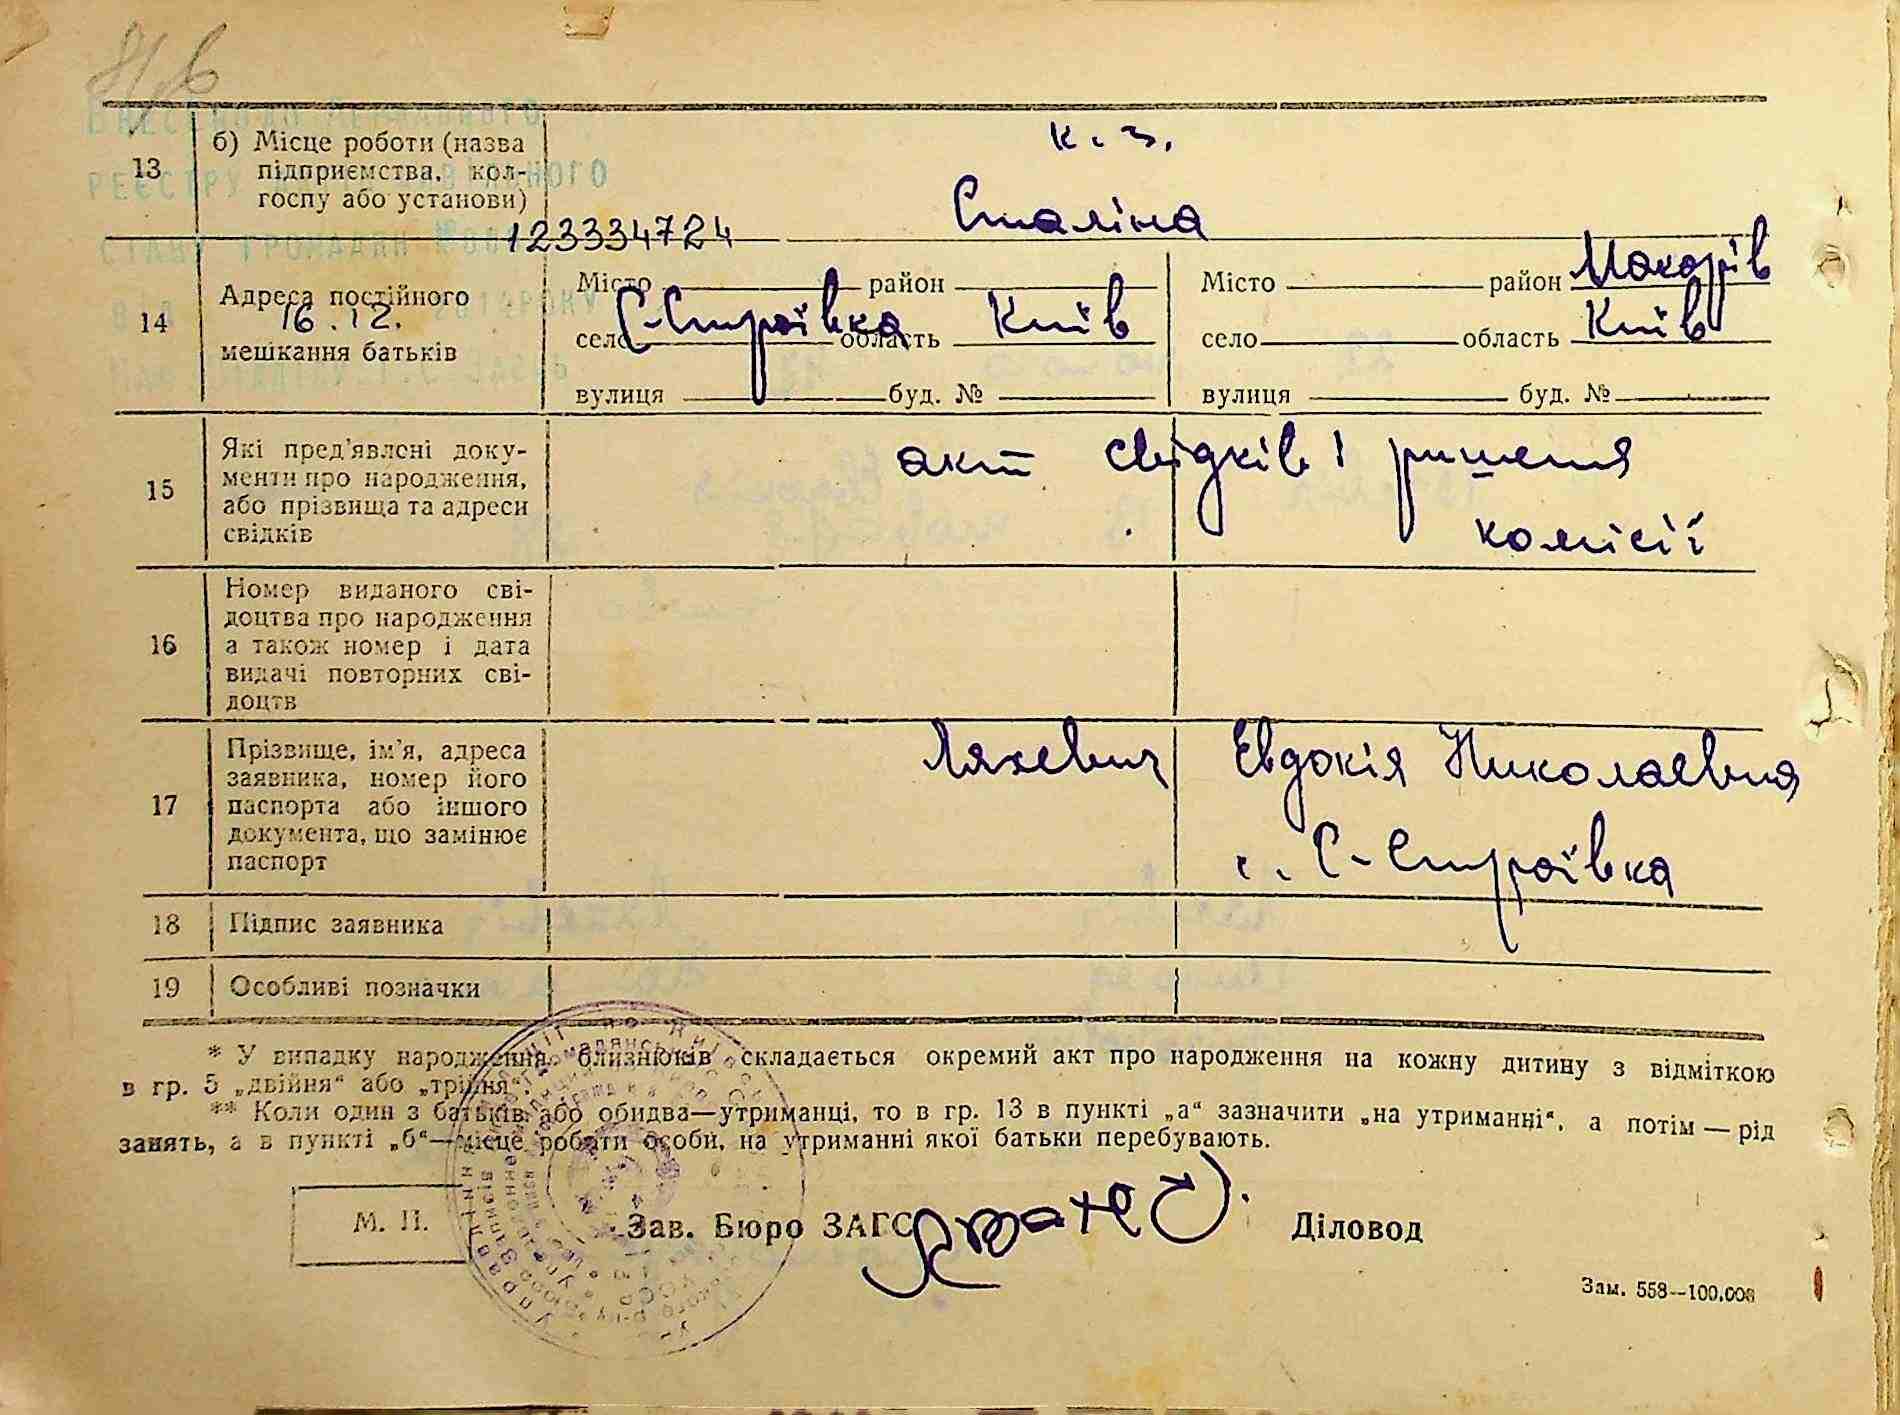 ВНЕСЕНО ДО ДЕРЖАВНОГО
РЕЄСТРУ АКТІВ ЦИВІЛЬНОГО
СТАНУ ГРОМАДЯН
123334724
16.12.
13 б) Місце роботи (назва
підприємства, кол-
госпу або установи)
к. з.
Сталіна
14 Адреса постійного
мешкання батьків
Місто район
село С-Строївка область Київ
вулиця буд. №
Місто район Макарів
село область Київ
вулиця буд. №
15 Які пред'явлені доку-
менти про народження,
або прізвища та адреси
свідків
акт свідків і ришення
комісії
16 Номер виданого сві-
доцтва про народження
а також номер і дата
видачі повторних сві-
доцтв
17 Прізвище, ім'я, адреса
заявника, номер його
паспорта або іншого
документа, що замінює
паспорт
Ляхевич Евдокія Николаевна
с. С-Строївка
18 Підпис заявника
19 Особливі позначки
* У випадку народження близнюків складається окремий акт про народження на кожну дитину з відміткою
в гр. 5 „двійня“ або „трійня“.
** Коли один з батьків або обидва—утриманці, то в гр. 13 в пункті „а“ зазначити „на утриманні“, а потім — рід
занять, а в пункті „б“—місце роботи особи, на утриманні якої батьки перебувають.
М. П.
Зав. Бюро ЗАГС
Діловод
Зам. 558—100.000